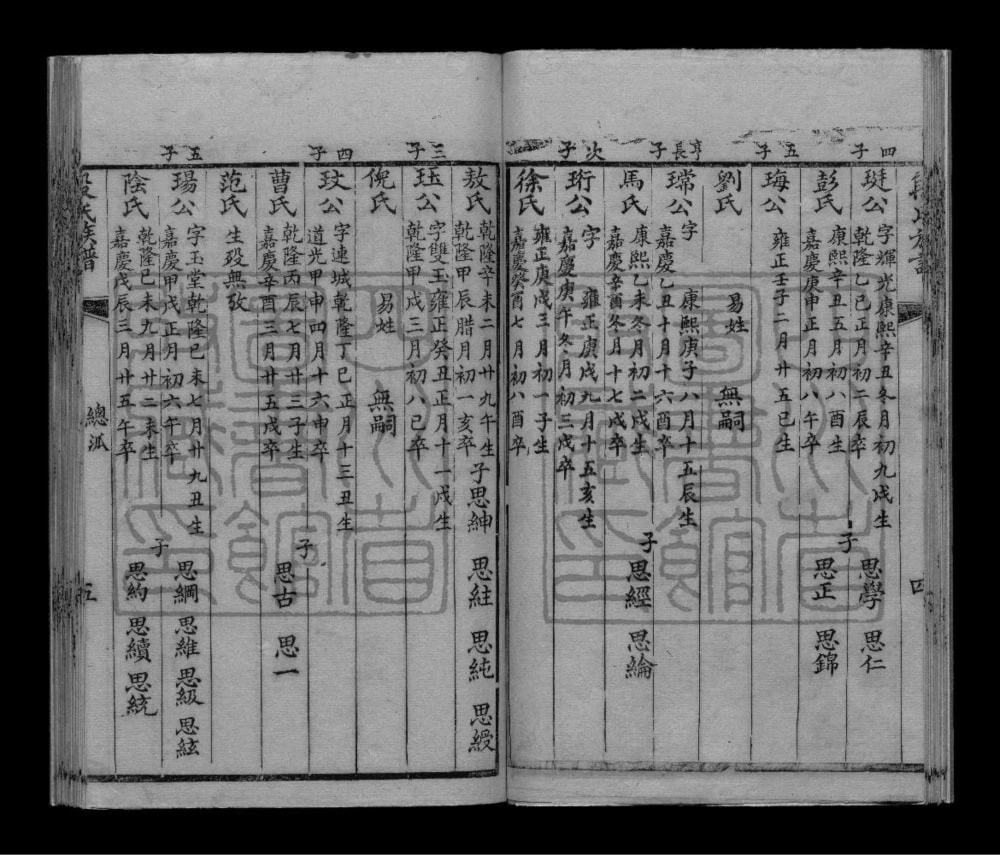 四子
㻶公 字輝光康熙辛丑冬月初九戌生
乾隆乙巳正月初二辰卒
子 思學 思仁
彭氏 康熙辛丑五月初八酉生
嘉慶庚申正月初八午卒
思正 思錦
五子
珻公 雍正壬子二月廿五巳生
劉氏 易姓 無嗣
亨長子
瑺公 字 康熙庚子八月十五辰生
嘉慶乙丑十月十六酉卒
馬氏 康熙乙未冬月初二戌生
嘉慶辛酉冬月十七戌卒
子 思經 思綸
次子
珩公 字 雍正庚戌九月十五亥生
嘉慶庚午冬月初三戌卒
徐氏 雍正庚戌三月初一子生
嘉慶癸酉七月初八酉卒
敖氏 乾隆辛未二月廿九午生
乾隆甲辰腊月初一亥卒
子思紳 思紸 思純 思綬
三子
玨公 字雙玉雍正癸丑正月十一戌生
乾隆甲戌三月初八巳卒
倪氏 易姓 無嗣
四子
玟公 字連城乾隆丁巳正月十三丑生
道光甲申四月十六申卒
曹氏 乾隆丙辰七月廿三子生
嘉慶辛酉三月廿五戌卒
子 思古 思一
范氏 生殁無攷
五子
瑒公 字玉堂乾隆己未七月廿九丑生
嘉慶甲戌正月初六午卒
子 思綱 思維 思級 思絃
陰氏 乾隆己未九月廿二未生
嘉慶戊辰三月廿五午卒
思約 思續 思統
段氏族譜
總派
五
四